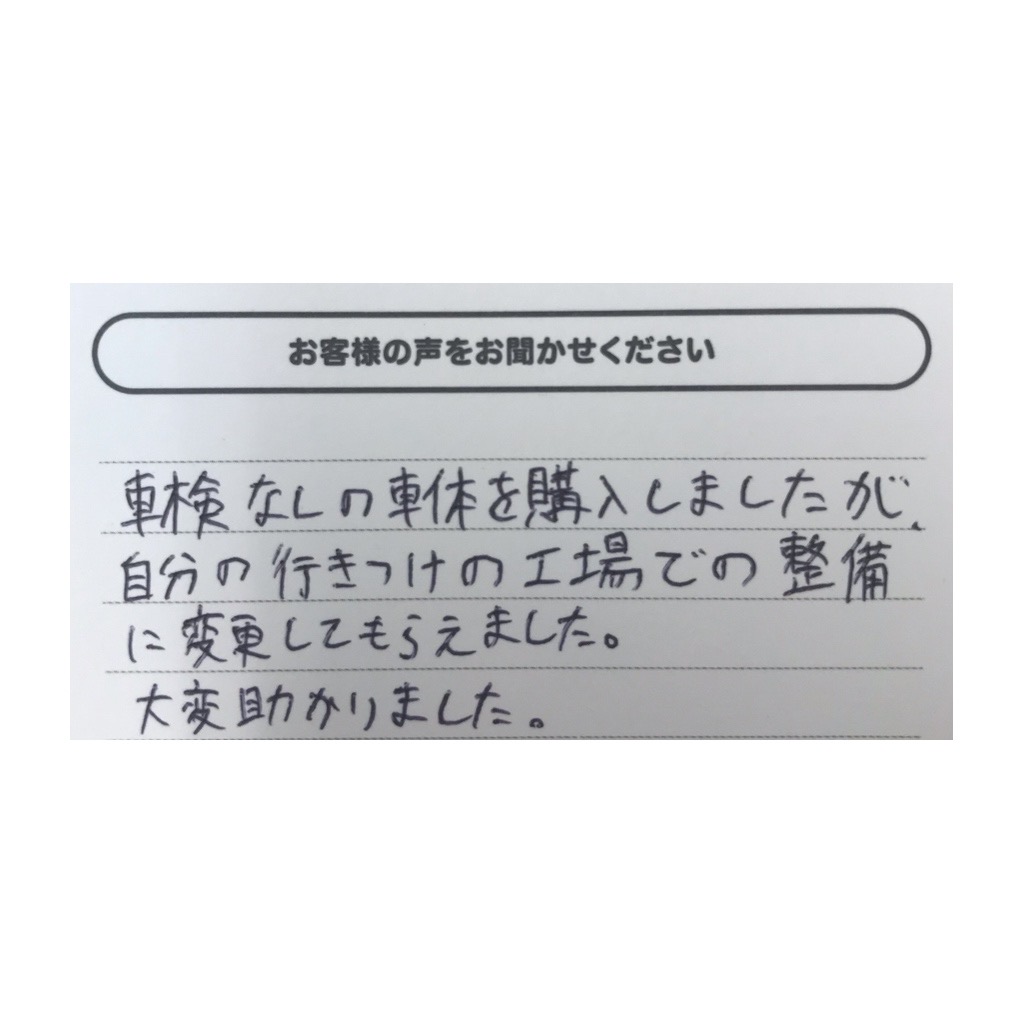 お客様の声をお聞かせください
車検なしの車体を購入しましたが、
自分の行きつけの工場での整備
に変更してもらえました。
大変助かりました。